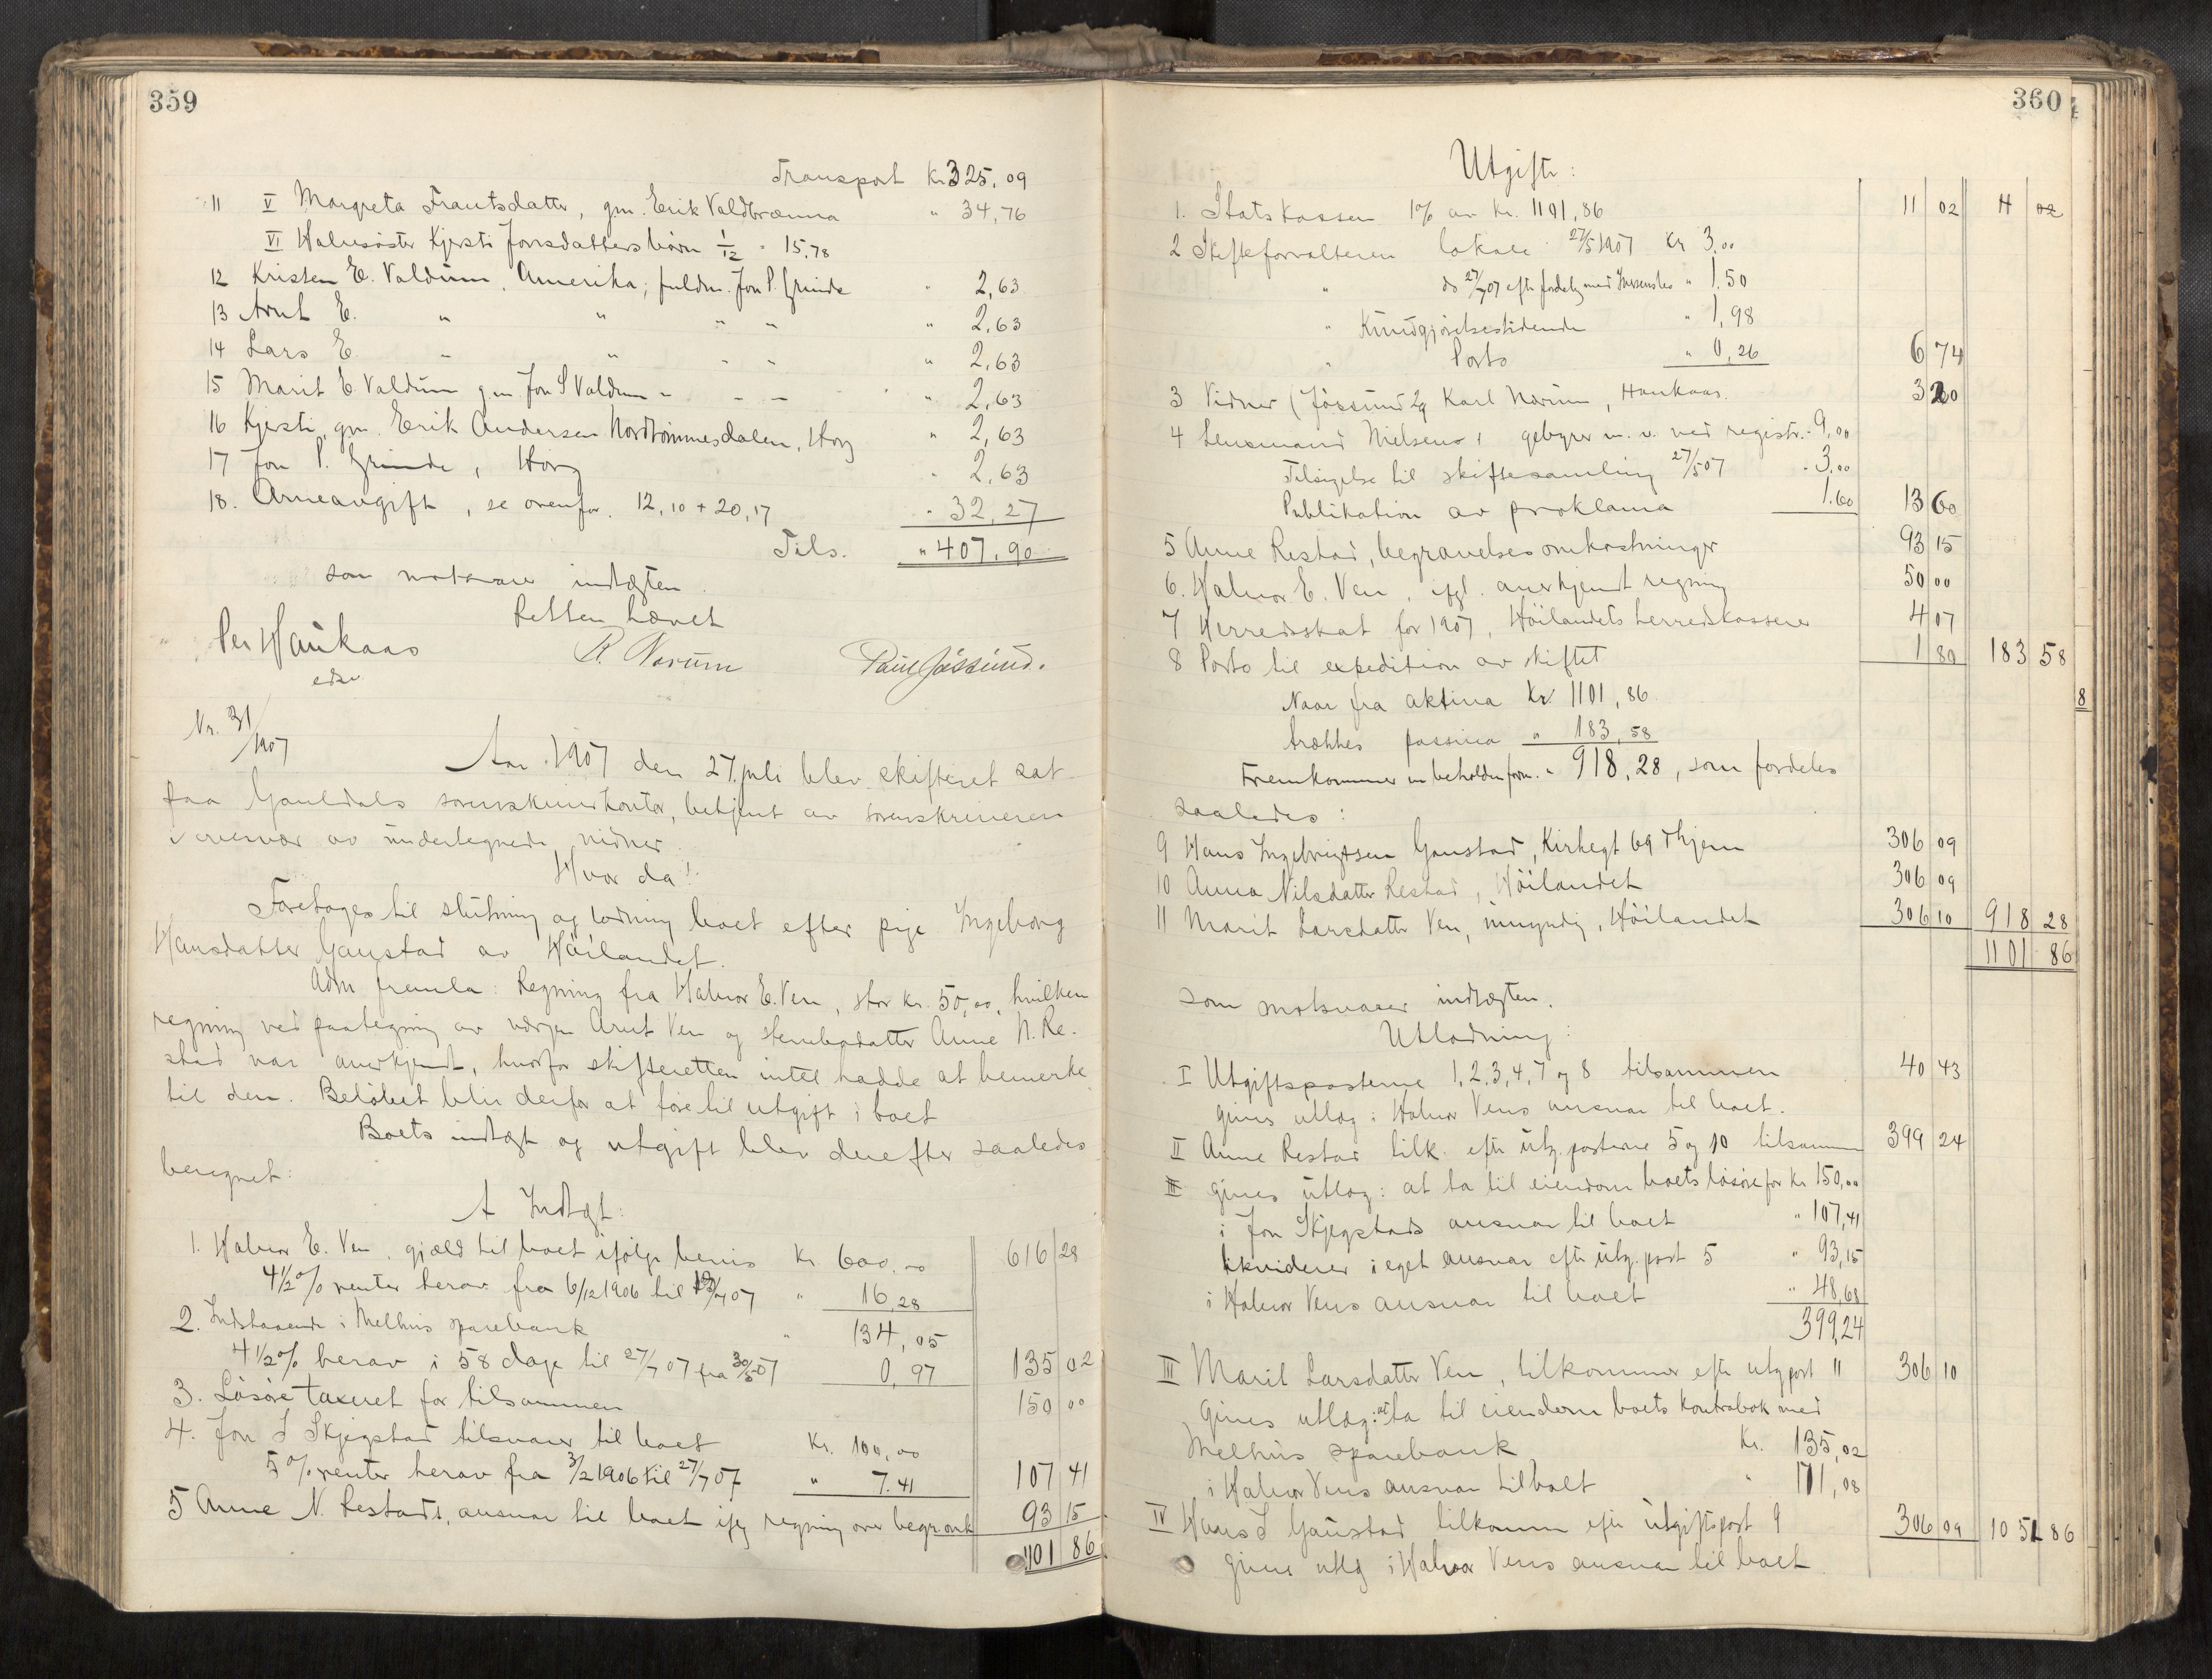 359
Transport Kr 325,09
11 V Margreta Frantsdatter, gm. Erik Valdbrænna " 34,76
VI Halvsöster Kjersti Jonsdatters börn 1/12 = 15,78
12 Kristen E. Valdum, Amerika, fuldm. Jon P. Grinde " 2,63
13 Arnt E. " " " " " 2,63
14 Lars E. " " " " " 2,63
15 Marit E Valdum gm Jon S Valdum " " " " 2,63
16 Kjersti, gm. Erik Andersen Nordtömmesdalen, Horg " 2,63
17 Jon P. Grinde, Horg " 2,63
18. Arveavgift, se ovenfor. 12,10 + 20,17 " 32,27
Tils. " 407,90
som motsvarer indtægten.
Retten hævet
Per Haukaas R. Norum Paul Jössund.
edsv
Nr. 31/1907
Aar 1907 den 27. juli blev skifteret sat
paa Gauldals sorenskriverkontor, betjent av sorenskriveren
i overvær av undertegnede vidner.
Hvor da!
Foretages til slutning og lodning boet efter pige Ingeborg
Hansdatter Gaustad av Höilandet.
Adm. fremla: Regning fra Halvor E. Ven, stor kr. 50,00, hvilken
regning ved paategning av værgen Arnt Ven og stervbodatter Anne N. Re-
stad var anerkjendt, hvorfor skifteretten intet hadde at bemerke
til den. Belöbet blir derfor at före til utgift i boet
Boets indtægt og utgift blev derefter saaledes
beregnet:
A Indtægt:
1. Halvor E. Ven, gjæld til boet ifölge bevis Kr. 600,00 616 28
4 1/2 % renter herav fra 6/12 1906 til 07 " 16,28
2. Indstaaende i Melhus sparebank " 134,05
4 1/2 % herav i 58 dage til 27/7 07 fra 30/5 07 0,97 135 02
3. Lösöre taxeret for tilsammen 150 00
4. Jon J Skjegstad tilsvarer til boet Kr. 100,00
5 % renter herav fra 3/2 1906 til 27/7 07 " 7.41 107 41
5 Anne N. Restads, ansvar til boet ifg regning over begr.omk 93 15
1101 86
360
Utgift:
1. Statskassen 1% av kr. 1101,86 11 02 11 02
2 Skifteforvalteren lokale 27/5 1907 Kr 3,00
" do 27/7 07 efter fordeling med " 1,50
" Kundgjörelsestidende " 1,98
" Porto " 0,26 6 74
3 Vidner (Jössund og Karl Norum, Haukaas. 3 20
4 Lensmand Nielsens gebyrer m. v. ved registr. 9,00
Tilsigelse til skiftesamling 27/5 07 " 3,00
Publikation av proklama 1.60 13 60
5 Anne Restad, begravelsesomkostninger 93 15
6. Halvor E. Ven, ifgl. anerkjendt regning 50 00
7 Herredsskat for 1907, Höilandets herredskasserer 4 07
8 Porto til expedition av skiftet 1 80 183 58
8
Naar fra aktiva Kr 1101,86
trækkes passiva " 183,58
Fremkommer en beholden form. " 918,28, som fordeles
saaledes:
9 Hans Ingebrigtsen Gaustad, Kirkegt 69 Thjem 306 09
10 Anna Nilsdatter Restad, Höilandet 306 09
11 Marit Larsdatter Ven, umyndig, Höilandet 306 10 918 28
1101 86
som motsvarer indtægten.
Utlodning:
I Utgiftsposterne 1, 2, 3, 4, 7 og 8 tilsammen 40 43
gives utlæg i Halvor Vens ansvar til boet.
II Anne Restad tilk. efter utg. posterne 5 og 10 tilsammen 399 24
gives utlæg: at ta til eiendom boets lösöre for kr 150,00
i Jon Skjegstads ansvar til boet " 107,41
likviderer i eget ansvar efter utg. post 5 " 93,15
i Halvor Vens ansvar til boet " 48,68
399,24
III Marit Larsdatter Ven, tilkommer efter utg post 11 306 10
Gives utlæg: at ta til eiendom boets kontrabok med
Melhus sparebank Kr. 135,02
i Halvor Vens ansvar til boet " 171,08
IV Hans I Gaustad tilkommer efter utgiftspost 9 306 09 1051 86
gives utlæg i Halvor Vens ansvar til boet